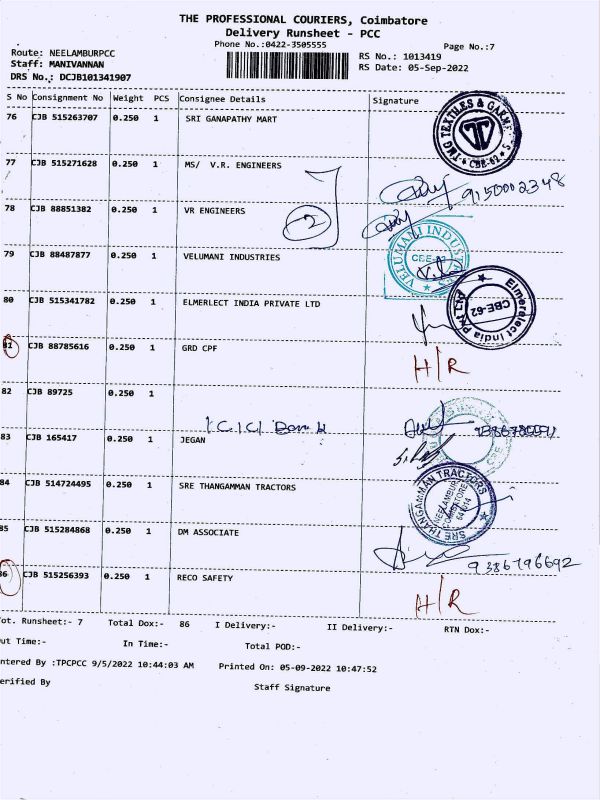 THE PROFESSIONAL COURIERS, Coimbatore
Delivery Runsheet - PCC
Phone No.:0422-3505555
Page No.:7
Route: NEELAMBURPCC
RS No.: 1013419
Staff: MANIVANNAN
RS Date: 05-Sep-2022
DRS No.: DCJB101341907
S No Consignment No Weight PCS Consignee Details Signature
76 CJB 515263707 0.250 1 SRI GANAPATHY MART
TMG TEXTILES & GARMENTS CBE-62
77 CJB 515271628 0.250 1 MS/ V.R. ENGINEERS
9150002348
78 CJB 88851382 0.250 1 VR ENGINEERS
2
79 CJB 88487877 0.250 1 VELUMANI INDUSTRIES
VELUMANI INDUSTRIES CBE-62
80 CJB 515341782 0.250 1 ELMERLECT INDIA PRIVATE LTD
Elmerelect India Pvt Ltd CBE-62
81 CJB 88785616 0.250 1 GRD CPF
H/R
82 CJB 89725 0.250 1
ICICI Bank
83 CJB 165417 0.250 1 JEGAN
84 CJB 514724495 0.250 1 SRE THANGAMMAN TRACTORS
SRE THANGAMMAN TRACTORS NEELAMBUR COIMBATORE 641014
85 CJB 515284868 0.250 1 DM ASSOCIATE
9386796692
86 CJB 515256393 0.250 1 RECO SAFETY
H/R
Tot. Runsheet:- 7 Total Dox:- 86 I Delivery:- II Delivery:- RTN Dox:-
ut Time:- In Time:- Total POD:-
ntered By :TPCPCC 9/5/2022 10:44:03 AM Printed On: 05-09-2022 10:47:52
erified By
Staff Signature